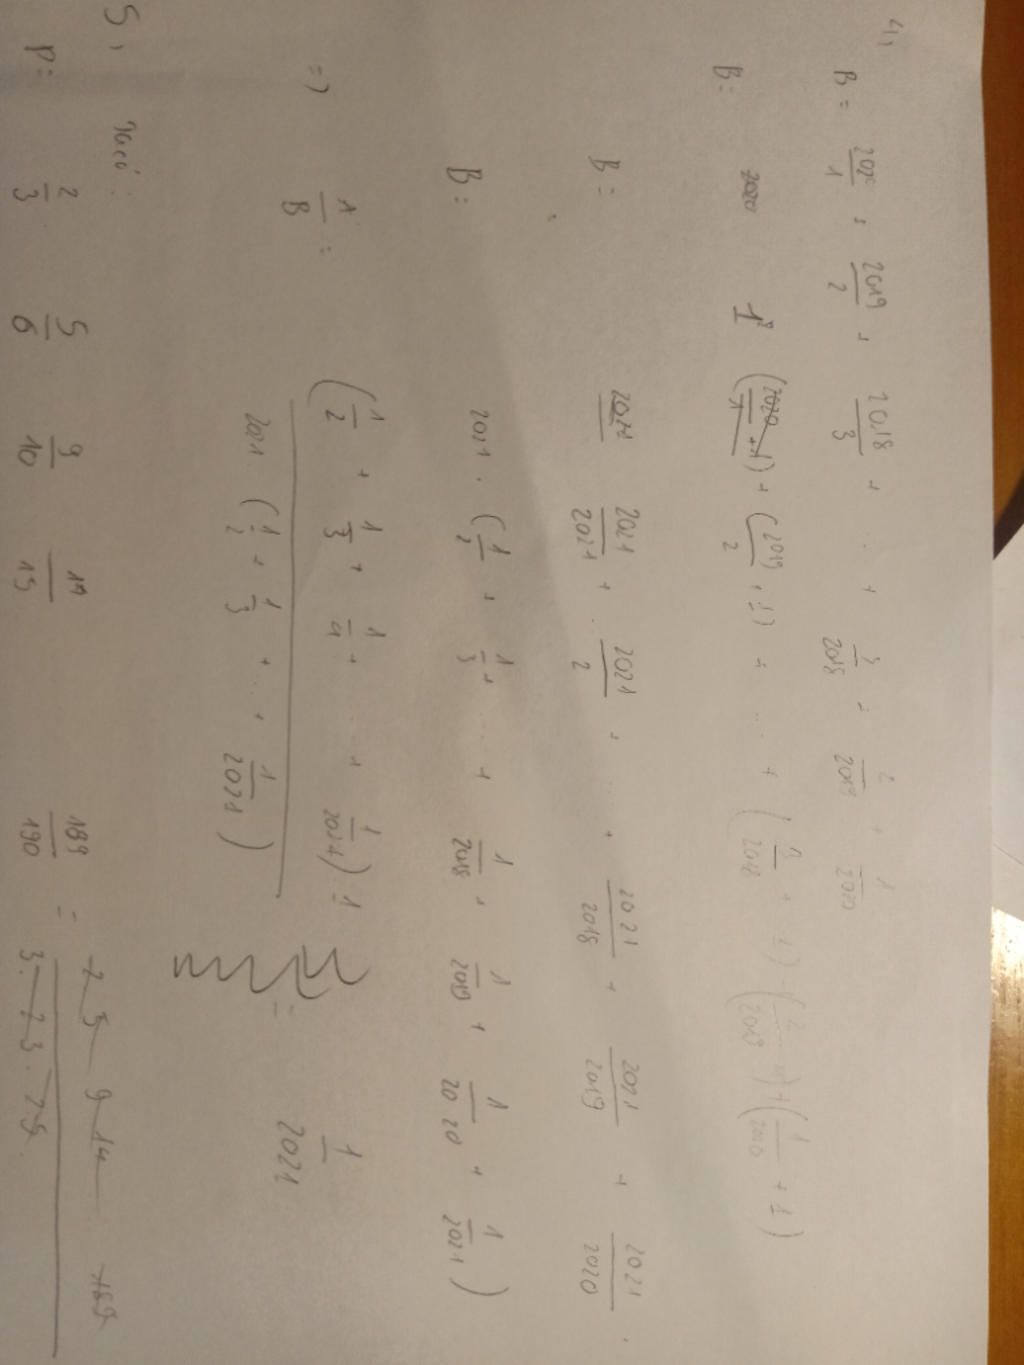 4,
B = 2020/1 + 2019/2 + 2018/3 + ... + 3/2018 + 2/2019 + 1/2020
B = 1 + (2019/2 + 1) + ... + (3/2018 + 1) + (2/2019 + 1) + (1/2020 + 1)
B = 2021/2021 + 2021/2 + ... + 2021/2018 + 2021/2019 + 2021/2020
B = 2021 . (1/2 + 1/3 + ... + 1/2018 + 1/2019 + 1/2020 + 1/2021)
=> A/B = (1/2 + 1/3 + 1/4 + ... + 1/2021) 1 / 2021 . (1/2 + 1/3 + ... + 1/2021) = 1/2021
5, Ta có :
P = 2/3 5/6 9/10 14/15 189/190 =